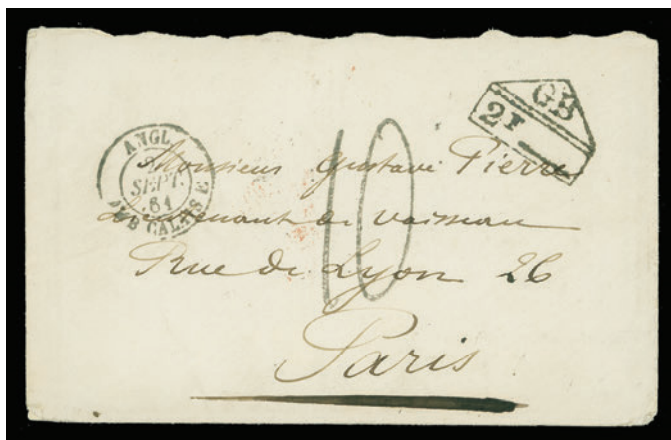 GB
2F
ANGL.
2
SEPT.
61
AMB CALAIS E
10
Monsieur Gustave Pierre
Lieutenant de vaisseau
Rue de Lyon 26
Paris